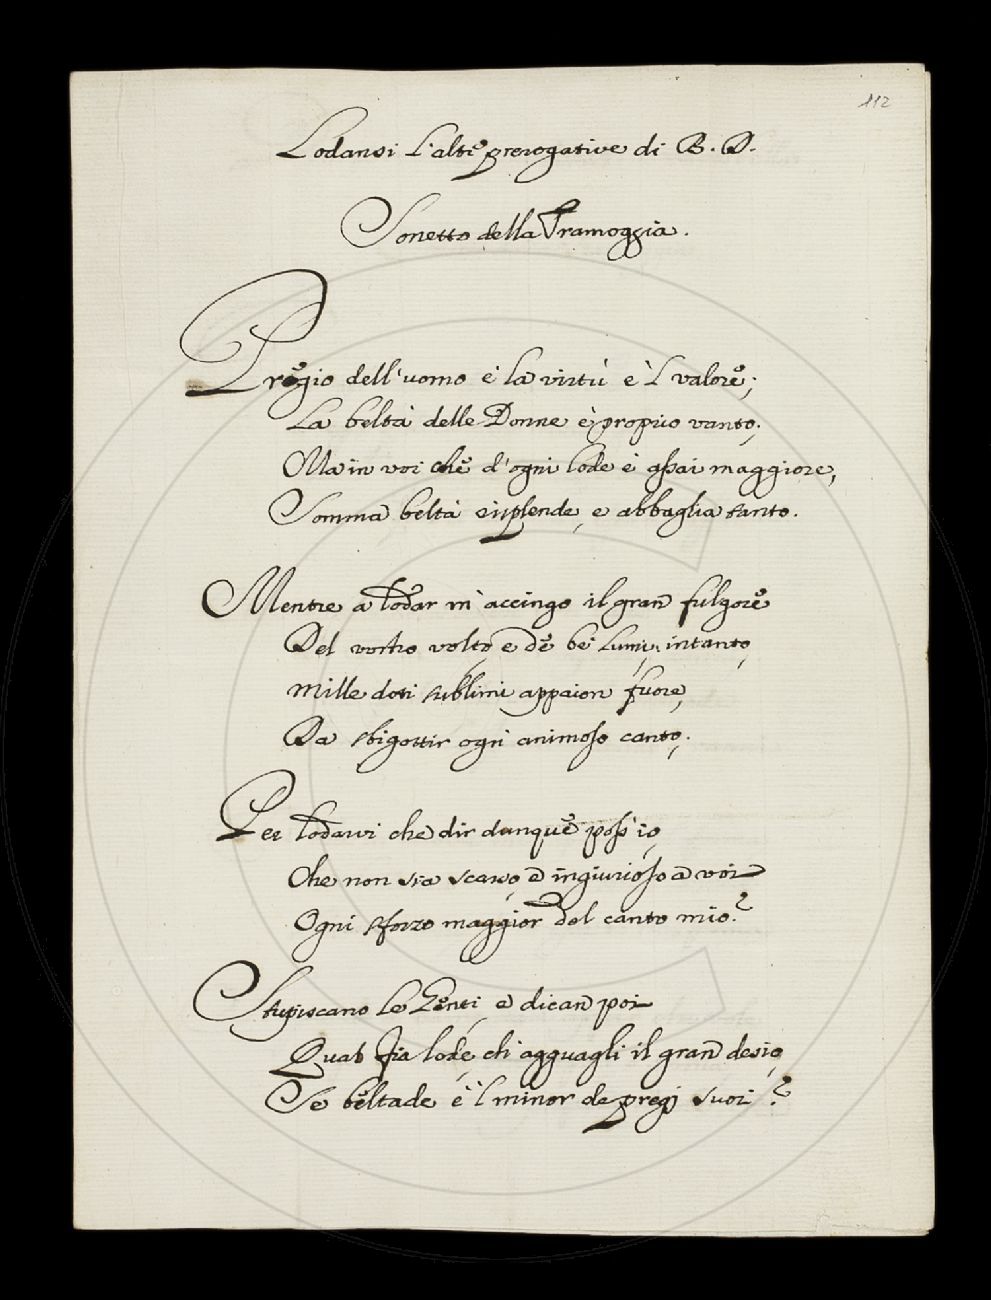 112
Lodansi l'alte prerogative di B. D.
Sonetto della Tramoggia.
Pregio dell'uomo è la virtù e 'l valore;
La beltà delle Donne è proprio vanto;
Ma in voi che d'ogni lode è assai maggiore,
Somma beltà risplende, e abbaglia tanto.
Mentre a lodar m'accingo il gran fulgore
Del vostro volto, e de bei lumi, intanto,
mille doti sublimi appaion fuore,
Da sbigottir ogni animoso canto;
Per lodarvi che dir dunque poss'io,
Che non sia scarso, e ingiurioso a voi
Ogni sforzo maggior del canto mio?
Stupiscano le Genti, e dican poi
Qual fia lode, ch'agguagli il gran desio,
Se beltade è 'l minor de pregj suoi?